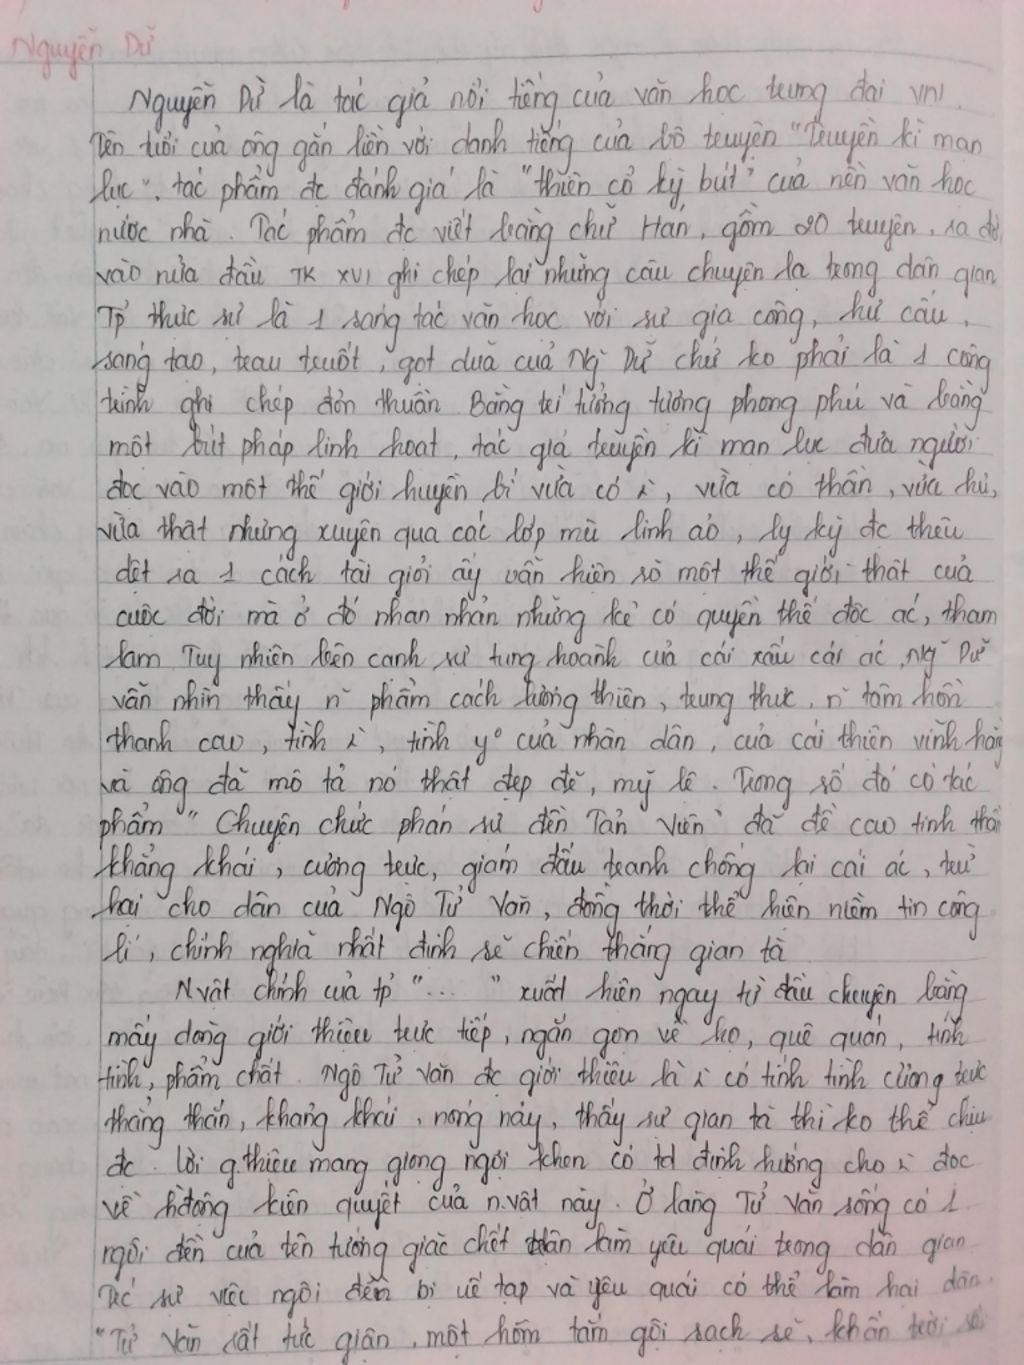 Nguyễn Dữ
Nguyễn Dữ là tác giả nổi tiếng của văn học trung đại VN.
Tên tuổi của ông gắn liền với danh tiếng của bộ truyện "Truyền kì mạn
lục". tác phẩm đc đánh giá là "thiên cổ kỳ bút" của nền văn học
nước nhà. Tác phẩm đc viết bằng chữ Hán, gồm 20 truyện, ra đời
vào nửa đầu TK XVI ghi chép lại những câu chuyện lạ trong dân gian
Tp thực sự là 1 sáng tác văn học với sự gia công, hư cấu,
sáng tạo, trau truốt, gọt dũa của Ng~ Dữ chứ ko phải là 1 công
trình ghi chép đơn thuần Bằng trí tưởng tượng phong phú và bằng
một bút pháp linh hoạt, tác giả truyền kì mạn lục đưa người
đọc vào một thế giới huyền bí vừa có ng, vừa có thần, vừa hư,
vừa thật nhưng xuyên qua các lớp mù linh ảo, ly kỳ đc thêu
dệt ra 1 cách tài giỏi ấy vẫn hiện rõ một thế giới thật của
cuộc đời mà ở đó nhan nhản những kẻ có quyền thế độc ác, tham
lam Tuy nhiên bên cạnh sự tung hoành của cái xấu cái ác, Ng~ Dữ
vẫn nhìn thấy n~ phẩm cách lương thiện, trung thực, n~ tâm hồn
thanh cao, tình ng, tình y° của nhân dân, của cái thiện vĩnh hằng
và ông đã mô tả nó thật đẹp đẽ, mỹ lệ. Trong số đó có tác
phẩm "Chuyện chức phán sự đền Tản Viên" đã đề cao tinh thần
khẳng khái, cương trực, giám đấu tranh chống lại cái ác, trừ
hại cho dân của Ngô Tử Văn, đồng thời thể hiện niềm tin công
lí, chính nghĩa nhất định sẽ chiến thắng gian tà
Nvật chính của tp "...." xuất hiện ngay từ đầu chuyện bằng
mấy dòng giới thiệu trực tiếp, ngắn gọn về họ, quê quán, tính
tình, phẩm chất. Ngô Tử Văn đc giới thiệu là ng có tính tình cương trực
thẳng thắn, khẳng khái, nóng nảy, thấy sự gian tà thì ko thể chịu
đc. Lời g.thiệu mang giọng ngợi khen có td định hướng cho ng đọc
về hđộng kiên quyết của n.vật này. Ở làng Tử Văn sống có 1
ngôi đền của tên tướng giặc chết trận làm yêu quái trong dân gian
Tức sự việc ngôi đền bị uế tạp và yêu quái có thể làm hại dân.
"Tử Văn rất tức giận, một hôm tắm gội sạch sẽ, khấn trời